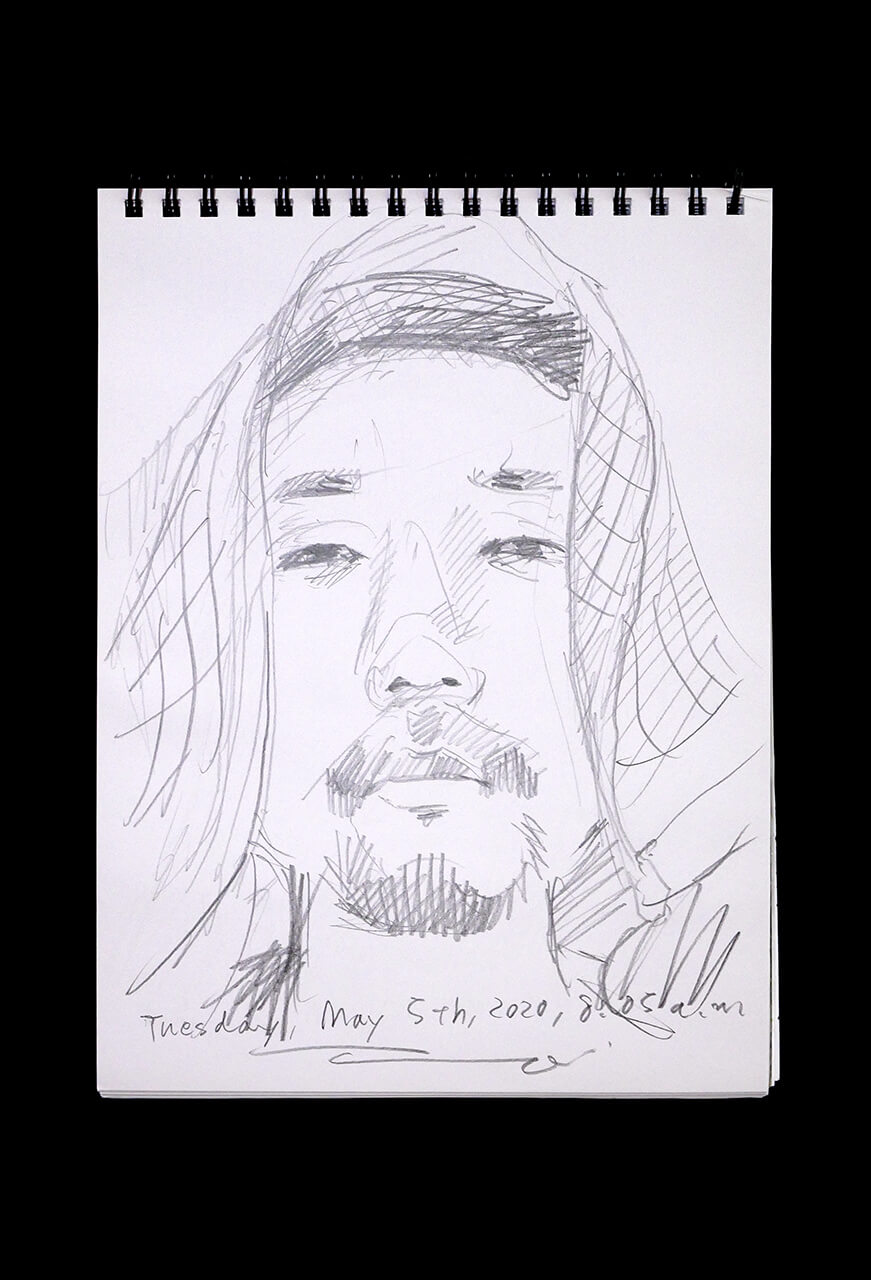 Tuesday, May 5th, 2020, 8:05 a.m